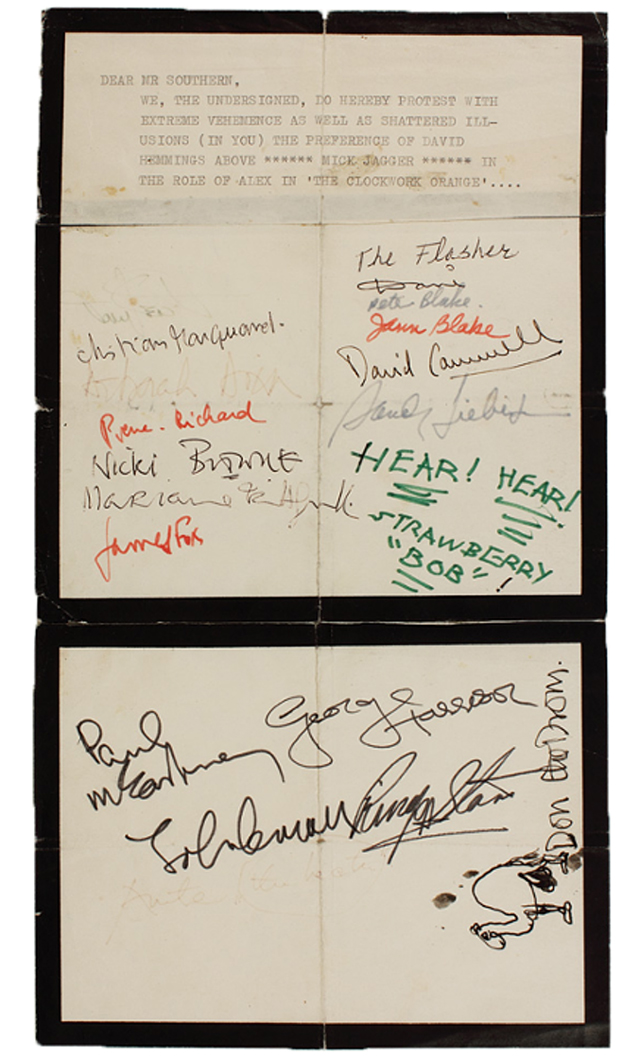 DEAR MR SOUTHERN,
WE, THE UNDERSIGNED, DO HEREBY PROTEST WITH
EXTREME VEHEMENCE AS WELL AS SHATTERED ILL-
USIONS (IN YOU) THE PREFERENCE OF DAVID
HEMMINGS ABOVE ****** MICK JAGGER ****** IN
THE ROLE OF ALEX IN 'THE CLOCKWORK ORANGE'....
The Flasher
Pete Blake.
Jann Blake
David Cammell
Christian Marquand.
Richard
Nicki BROWNE
Marianne Faithfull
James Fox
Sandy Lieberson
HEAR! HEAR!
STRAWBERRY
"BOB"!
Paul
McCartney
George Harrison
John Lennon
Ringo Starr
Don